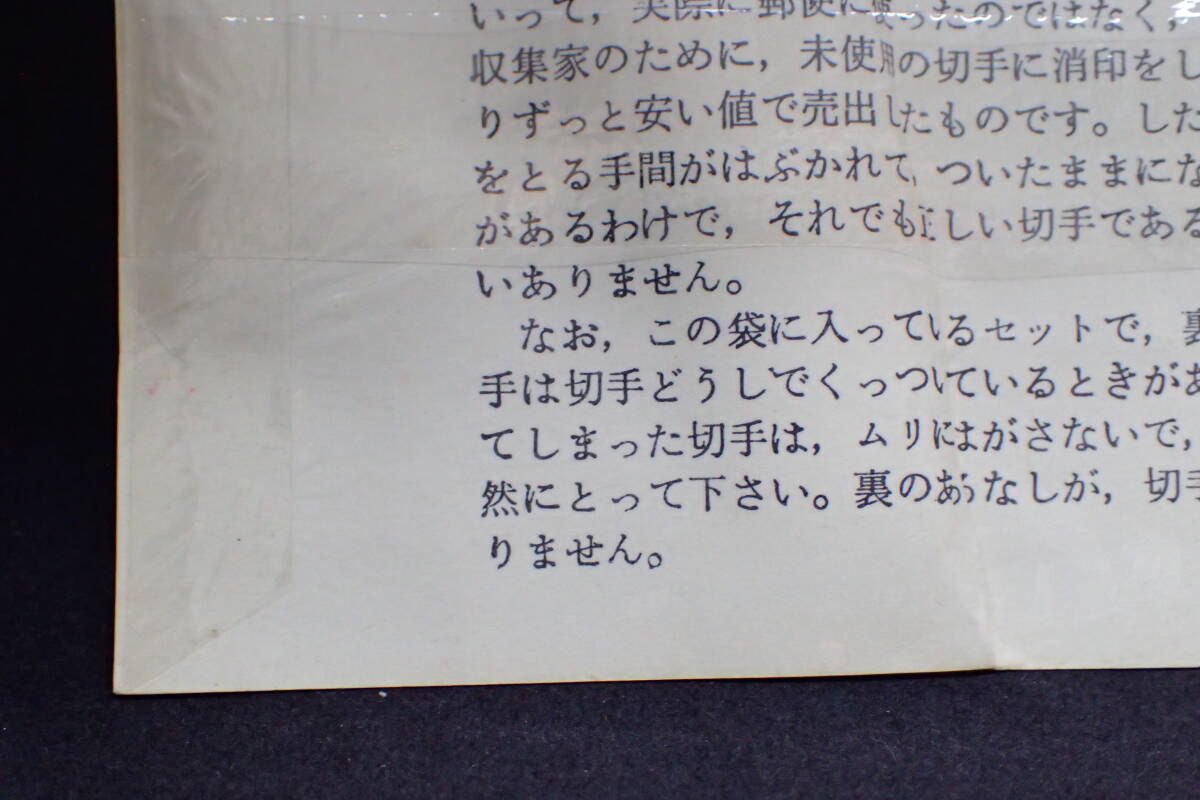 いって，実際に郵便に使ったのではなく，
収集家のために，未使用の切手に消印をし
りずっと安い値で売出したものです。した
をとる手間がはぶかれて，ついたままにな
があるわけで，それでも正しい切手である
いありません。
なお，この袋に入っているセットで，裏
手は切手どうしでくっついているときがあ
てしまった切手は，ムリにはがさないで，
然にとって下さい。裏のあるなしが，切手
りません。